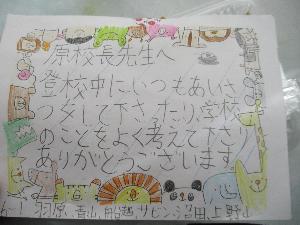 原校長先生へ
登校中にいつもあいさ
つをして下さったり、学校
のことをよく考えて下さ
ありがとうございます
羽原、青山、船越、サビン、沼田、上野山